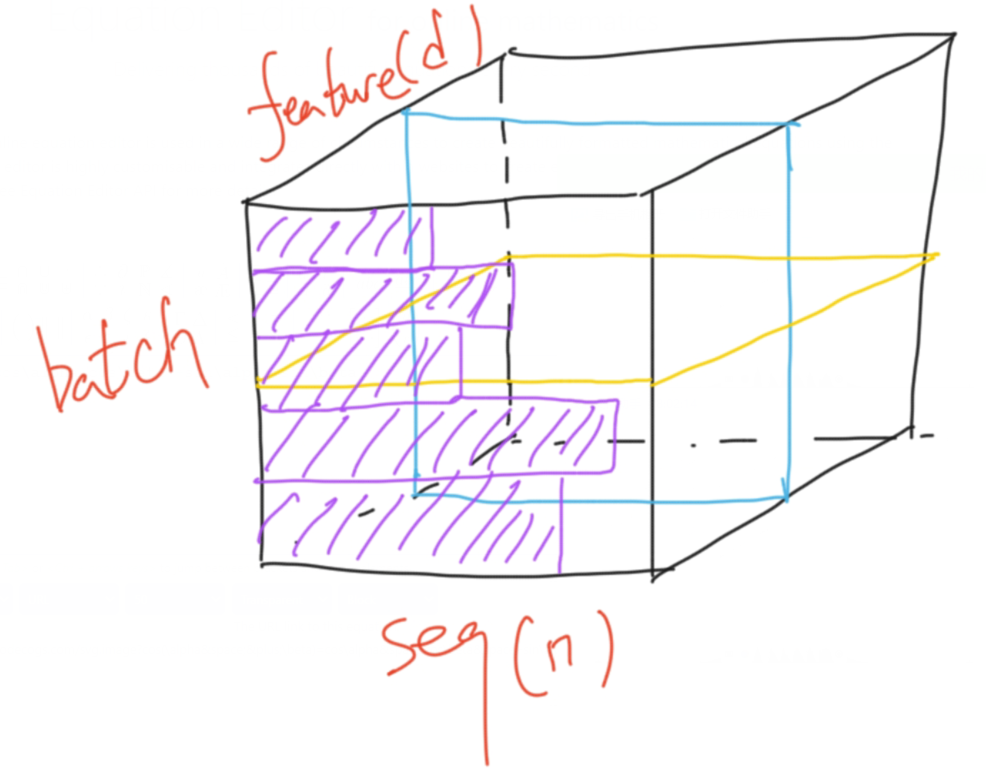 feature(d)
batch
seq (n)